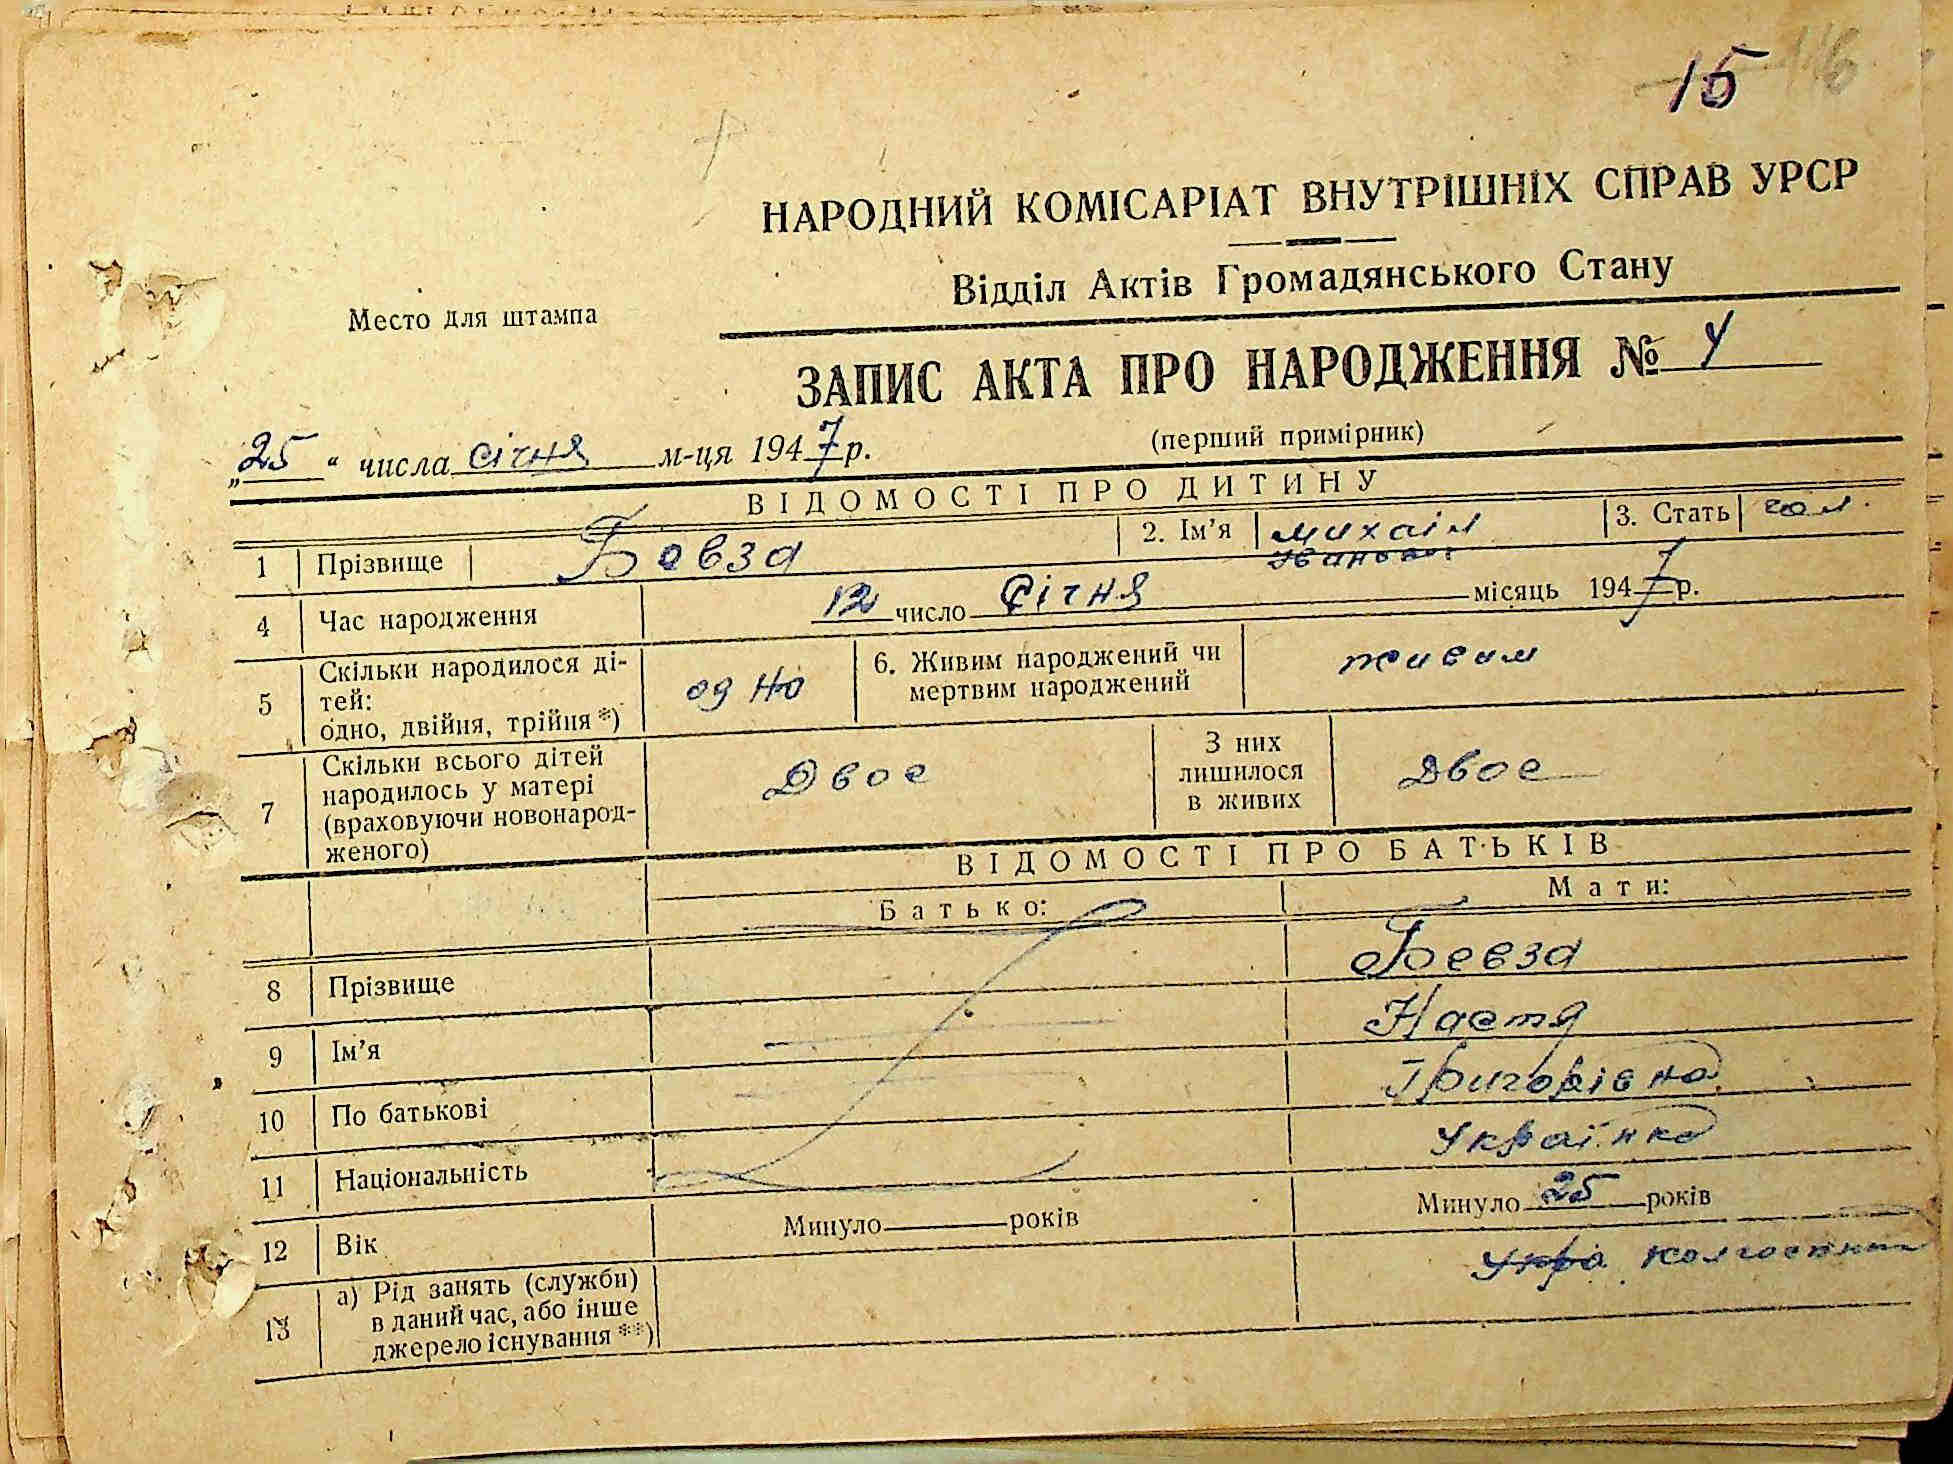 15 116
НАРОДНИЙ КОМІСАРІАТ ВНУТРІШНІХ СПРАВ УРСР
Відділ Актів Громадянського Стану
Место для штампа
ЗАПИС АКТА ПРО НАРОДЖЕННЯ № 4
„25“ числа січня м-ця 1947 р.
(перший примірник)
ВІДОМОСТІ ПРО ДИТИНУ
1 Прізвище Бевза 2. Ім’я михаіл Іванович 3. Стать чол.
4 Час народження 12 число Січня місяць 1947 р.
5 Скільки народилося ді-
тей:
одно, двійня, трійня *) одно 6. Живим народжений чи
мертвим народжений живим
7 Скільки всього дітей
народилось у матері
(враховуючи новонарод-
женого) Двое З них
лишилося
в живих Двое
ВІДОМОСТІ ПРО БАТЬКІВ
Батько: Мати:
8 Прізвище Бевза
9 Ім’я Настя
10 По батькові Григорівна
11 Національність Українка
12 Вік Минуло років Минуло 25 років
13 а) Рід занять (служби)
в даний час, або інше
джерело існування **) Укра